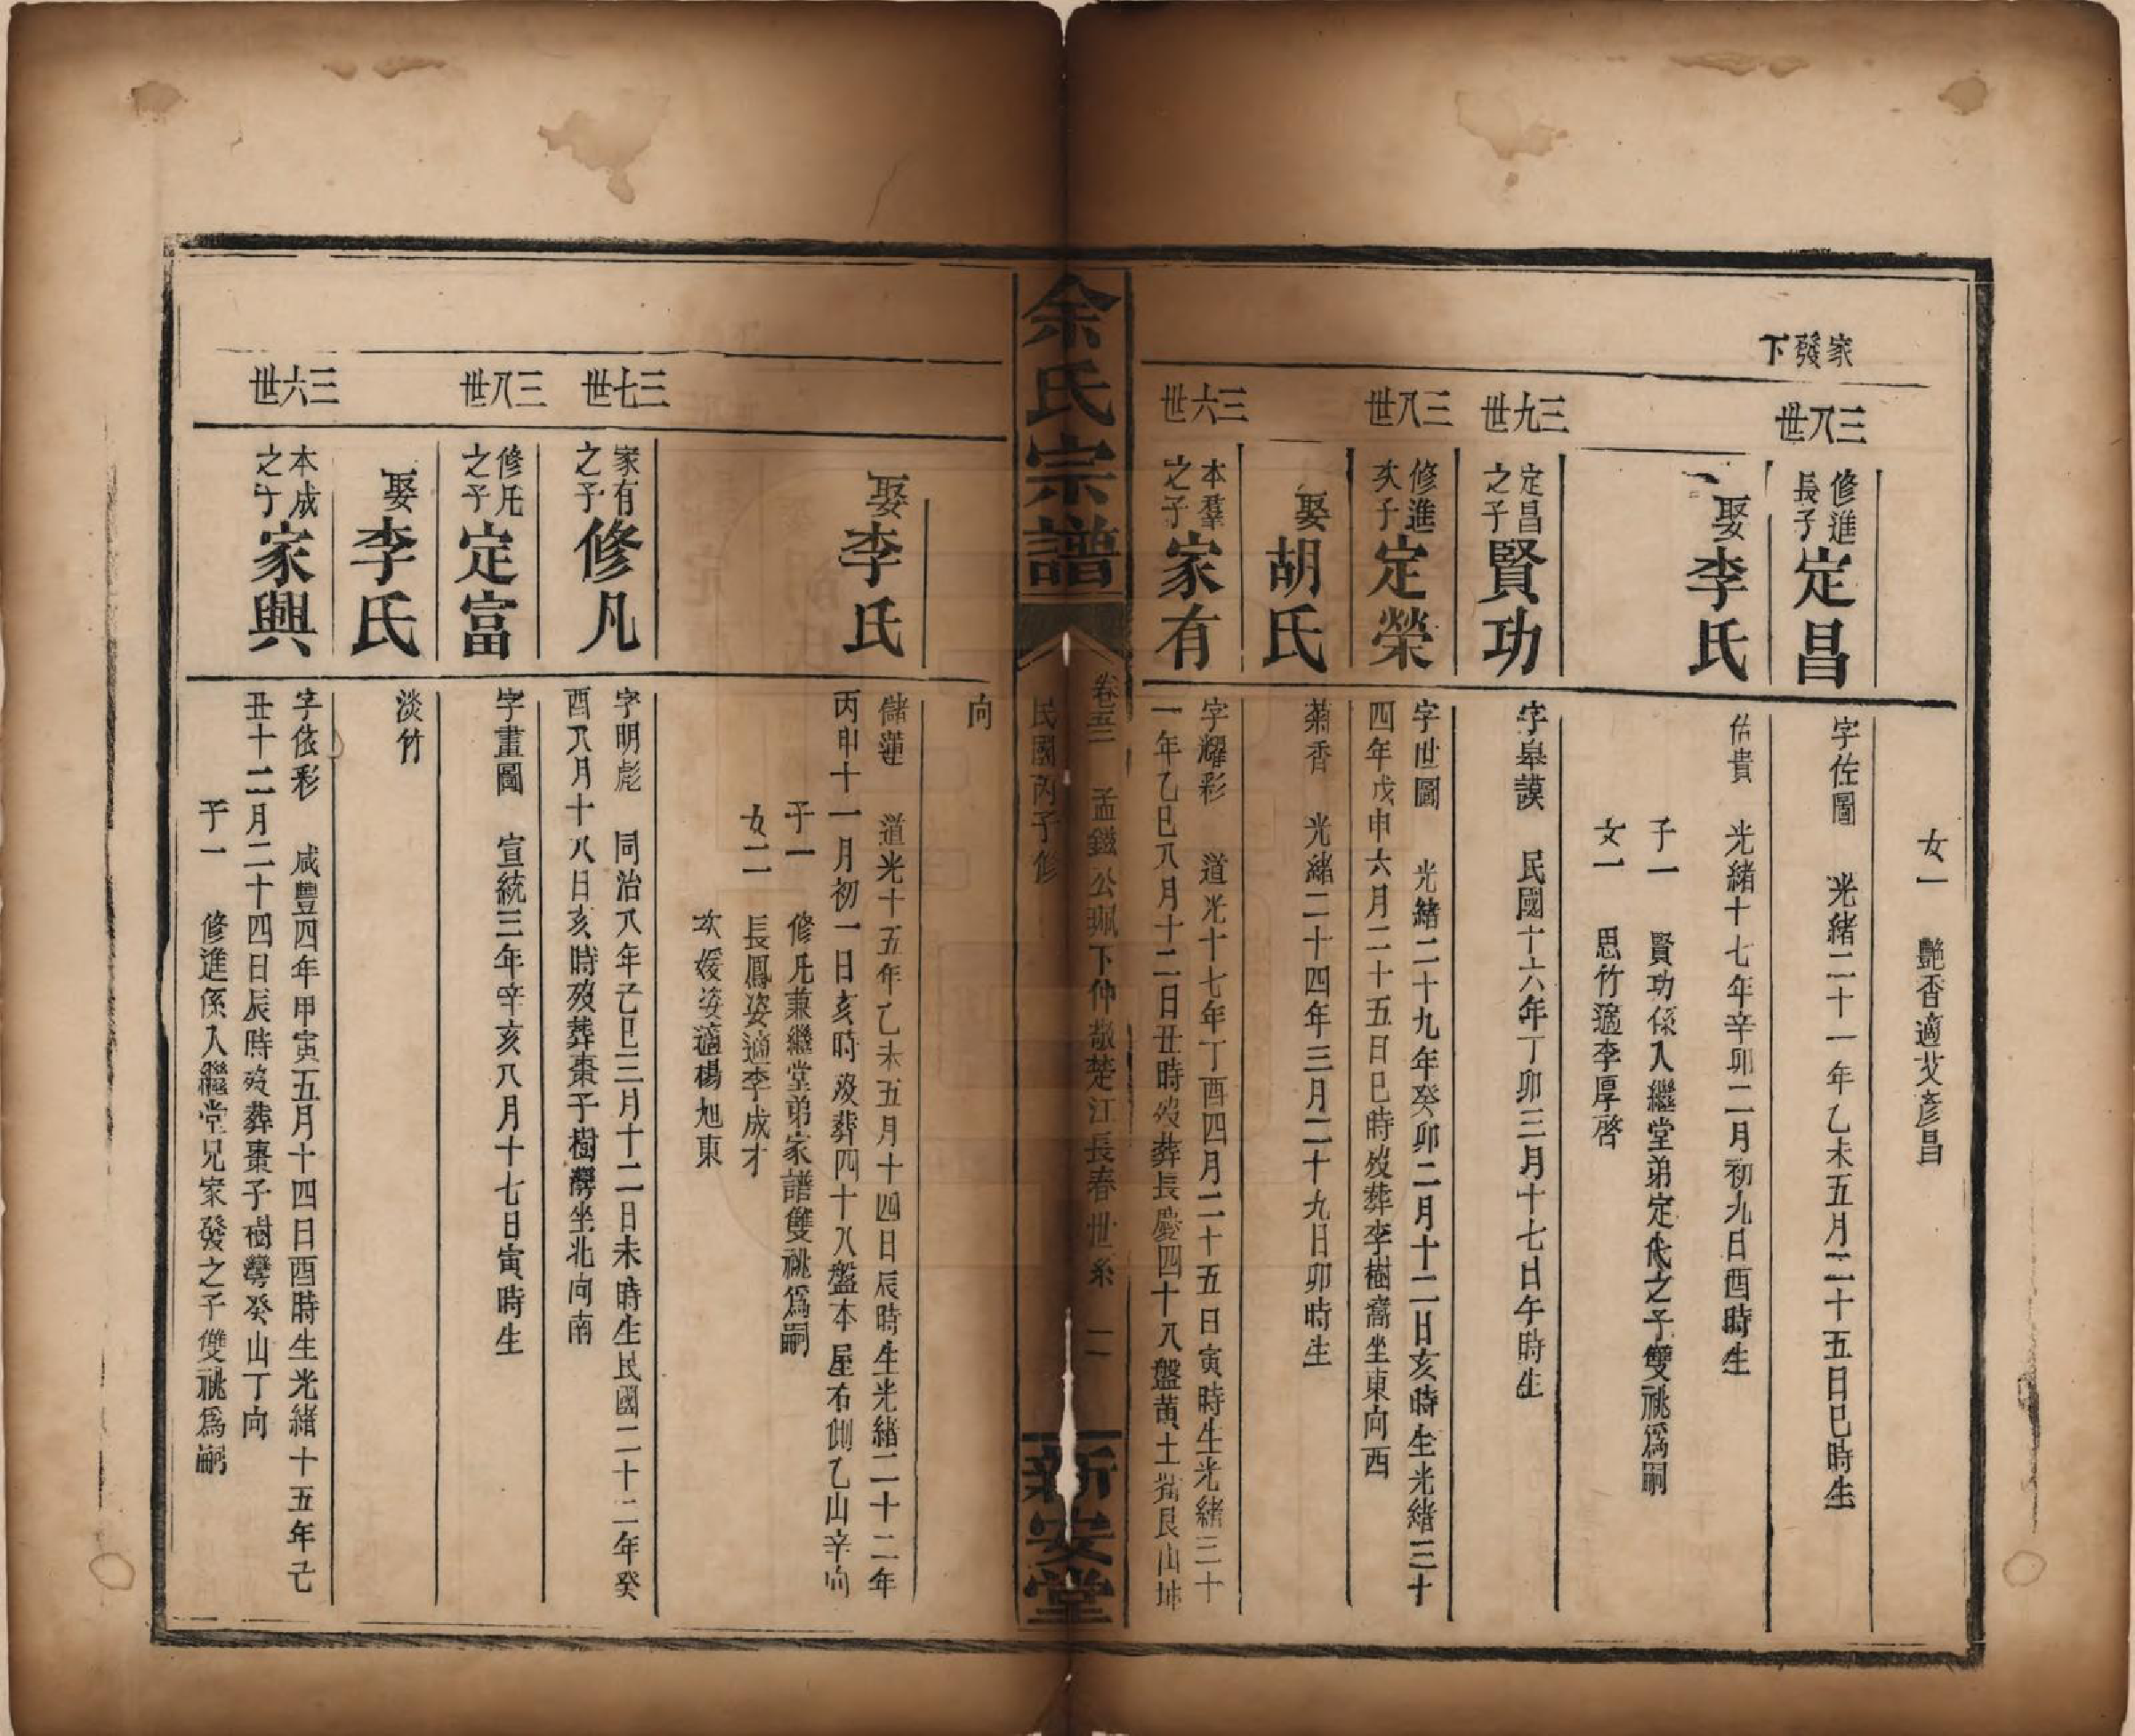 女一　艷香適艾彥昌
家發下
三八世
修進長子
定昌
字佐圖　光緒二十一年乙未五月二十五日巳時生
娶李氏
佑貴　光緒十七年辛卯二月初九日酉時生
子一　賢功係入繼堂弟定代之子雙祧爲嗣
女一　思竹適李厚啓
三九世
定昌之子
賢功
字皋謨　民國十六年丁卯三月十七日午時生
三八世
修進次子
定榮
字世圖　光緒二十九年癸卯二月十二日亥時生光緒三十
四年戊申六月二十五日巳時歿葬李樹窩坐東向西
娶胡氏
菊香　光緒二十四年三月二十九日卯時生
三六世
本羣之子
家有
字耀彩　道光十七年丁酉四月二十五日寅時生光緒三十
一年乙巳八月十二日丑時歿葬長慶四十八盤黃土艮山坤
余氏宗譜
卷三　孟鎰公珮下仲敬楚江長春世系　二
民國丙子修
新安堂
向
娶李氏
儲蓮　道光十五年乙未五月十四日辰時生光緒二十二年
丙申十一月初一日亥時歿葬四十八盤本屋右側乙山辛向
子一　修凡兼繼堂弟家譜雙祧爲嗣
女二　長鳳姿適李成才
次媛姿適楊旭東
三七世
家有之子
修凡
字明彪　同治八年己巳三月十二日未時生民國二十二年癸
酉八月十八日亥時歿葬棗子樹灣坐北向南
三八世
修凡之子
定富
字畫圖　宣統三年辛亥八月十七日寅時生
娶李氏
淡竹
三六世
本成之子
家興
字依彩　咸豐四年甲寅五月十四日酉時生光緒十五年己
丑十二月二十四日辰時歿葬棗子樹灣癸山丁向
子一　修進係入繼堂兄家發之子雙祧爲嗣